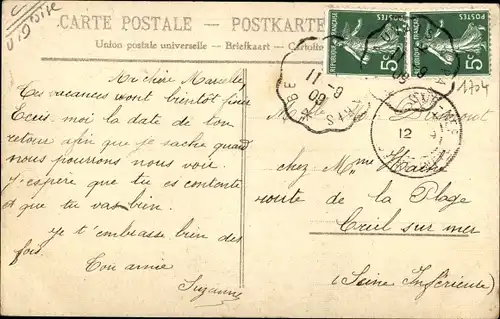 CARTE POSTALE - POSTKARTE
Union postale universelle - Briefkaart - Cartolin
POSTES
5c
RÉPUBLIQUE FRANÇAISE
POSTES
5c
RÉPUBLIQUE FRANÇAISE
1704
11
9-
09
12
Ma chère Marcelle,
Tes vacances vont bientôt finir
Ecris moi la date de ton
retour afin que je sache quand
nous pourrons nous voir.
J'espère que tu es contente
et que tu vas bien.
Je t'embrasse bien des
fois.
Ton amie
Suzanne
chez Mme
route de la Plage
Creil sur mer
(Seine Inférieure)